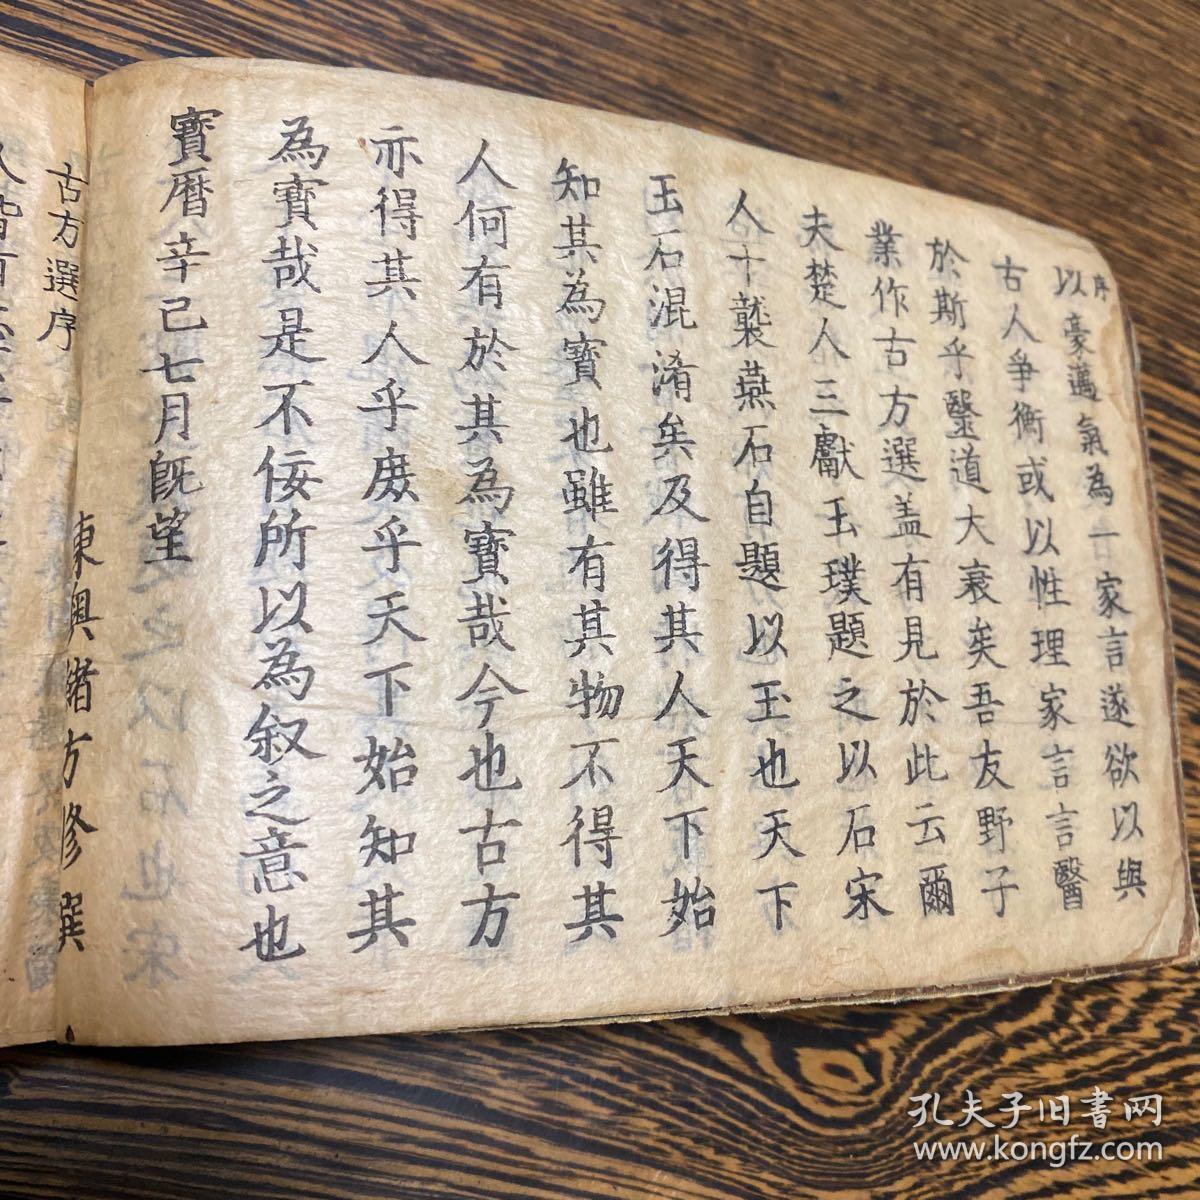 序
以豪邁氣為一家言遂欲以與
古人爭衡或以性理家言言醫
於斯乎毉道大衰矣吾友野子
業作古方選盖有見於此云爾
夫楚人三獻玉璞題之以石宋
人十襲燕石自題以玉也天下
玉石混淆矣及得其人天下始
知其為寶也雖有其物不得其
人何有於其為寶哉今也古方
亦得其人乎庻乎天下始知其
為寶哉是不佞所以為叙之意也
寶曆辛己七月旣望
東奥緒方修撰
古方選序
孔夫子旧书网
www.kongfz.com